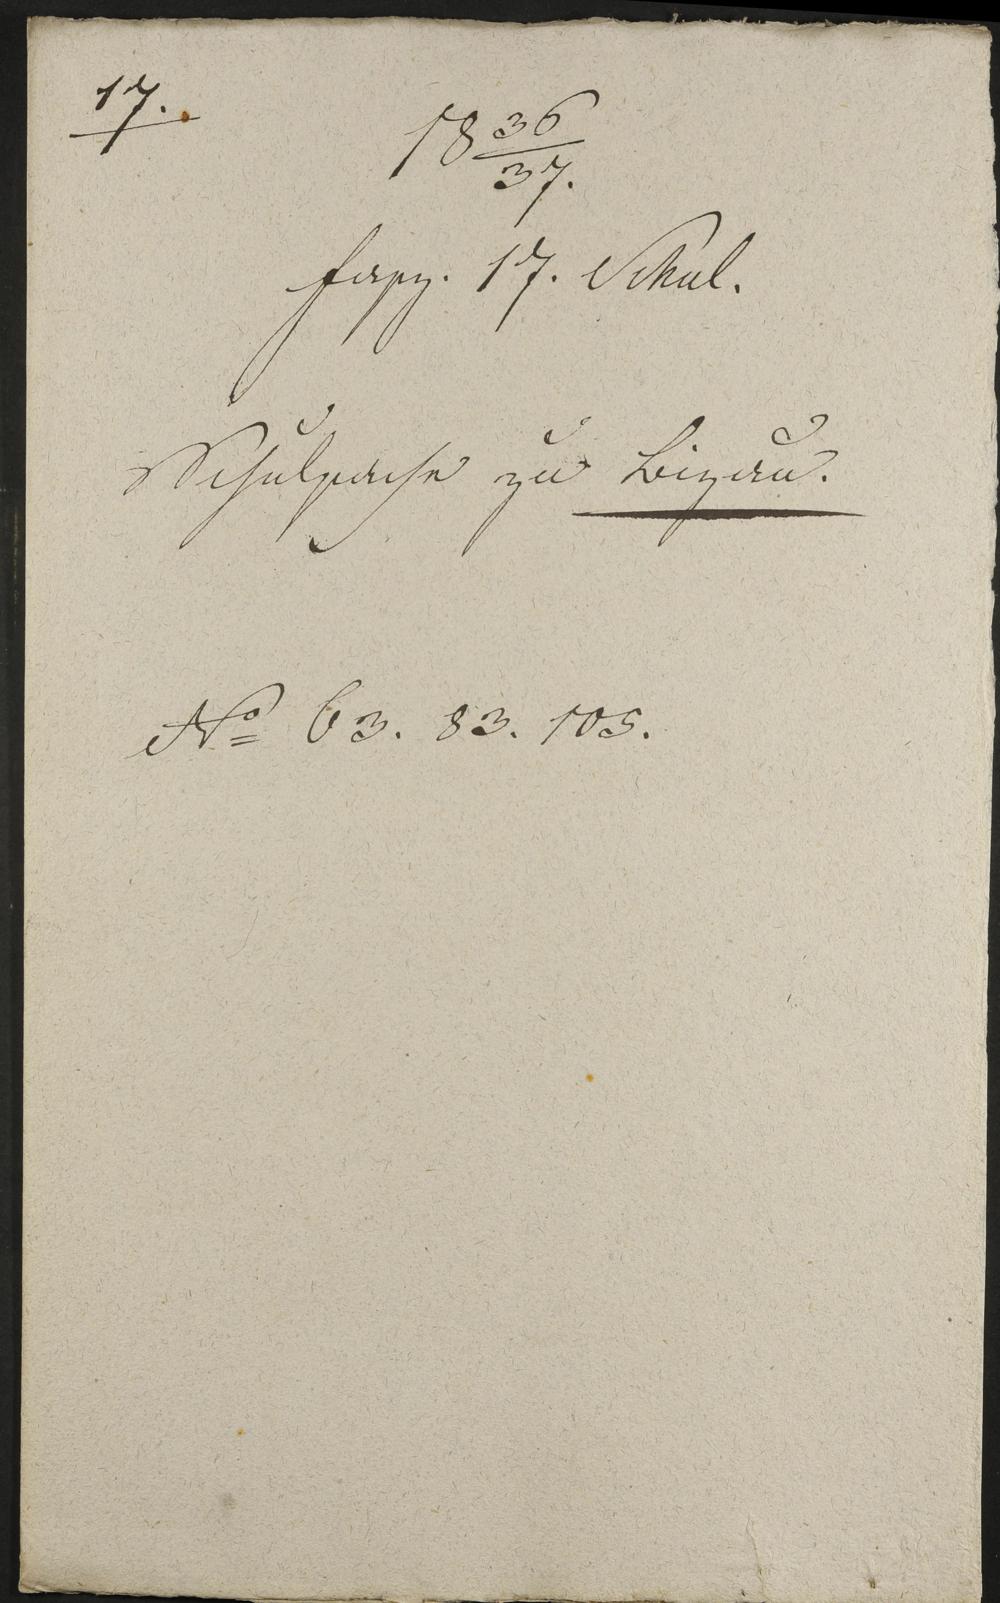 17.
18 36/37.
Fasz. 17. Schul.
Schulsache zu Bizau.
No 63. 83. 105.